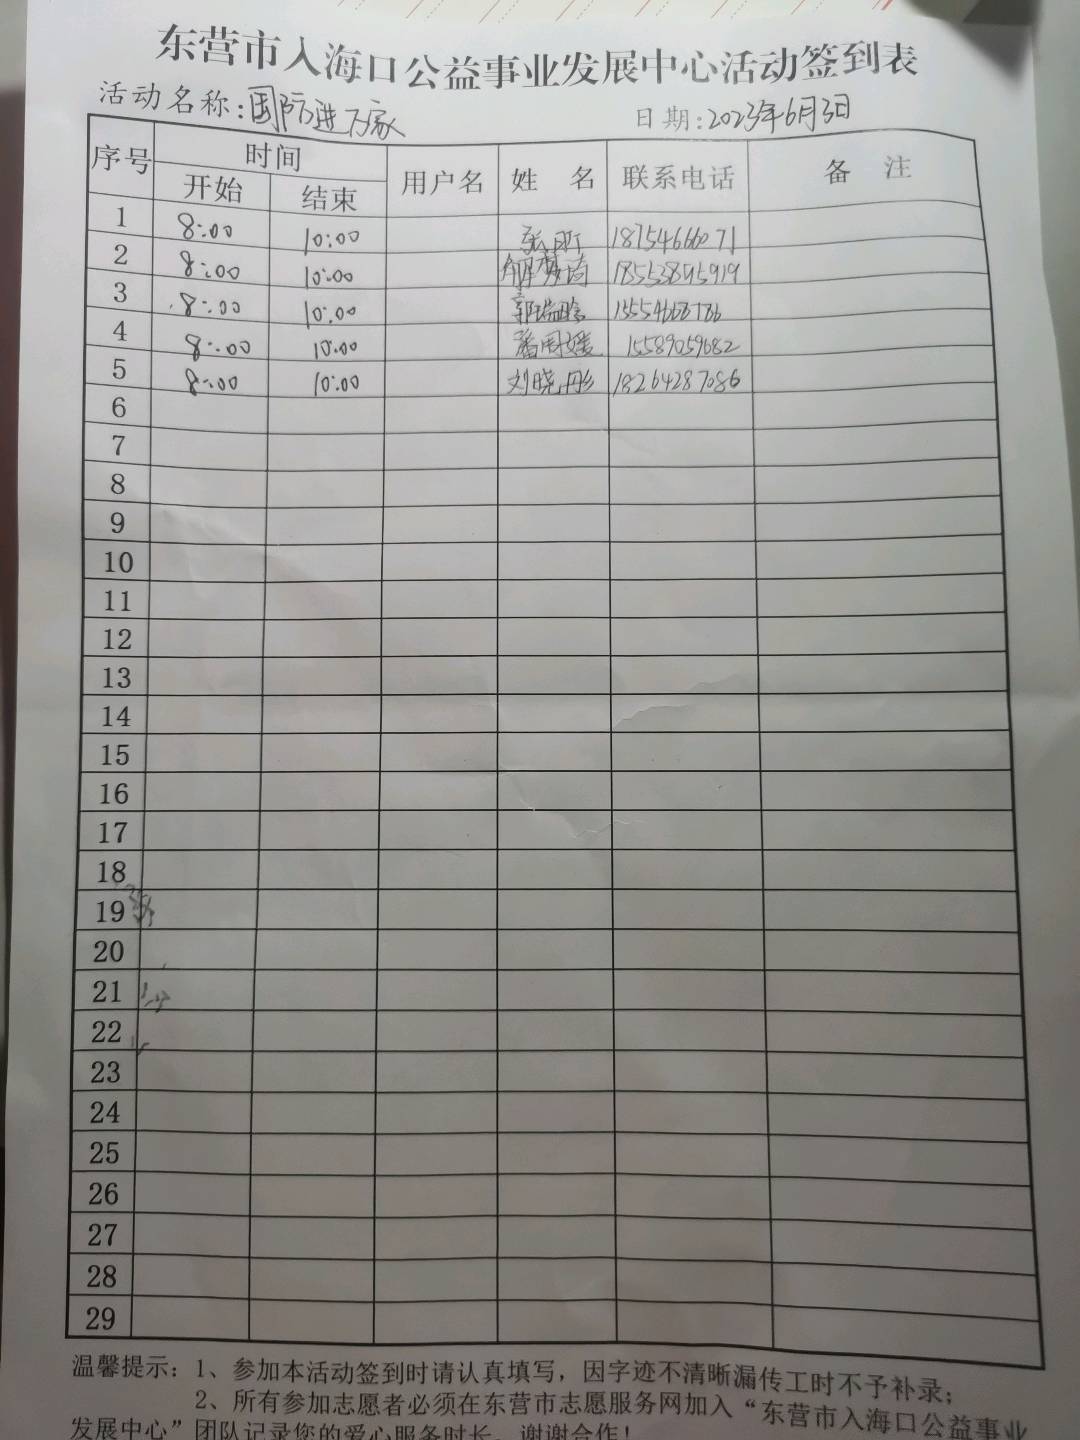 东营市入海口公益事业发展中心活动签到表
活动名称：国防进万家 日期：2023年6月3日
序号 时间 用户名 姓名 联系电话 备注
开始 结束
1 8:00 10:00 18754666071
2 8:00 10:00 解梦琦 18552895919
3 8:00 10:00 郭瑞晗 15554668786
4 8:00 10:00 潘周媛 15589059682
5 8:00 10:00 刘晓彤 18264287086
6
7
8
9
10
11
12
13
14
15
16
17
18
19
20
21
22
23
24
25
26
27
28
29
温馨提示：1、参加本活动签到时请认真填写，因字迹不清晰漏传工时不予补录；
2、所有参加志愿者必须在东营市志愿服务网加入“东营市入海口公益事业
发展中心”团队记录您的爱心服务时长。谢谢合作！